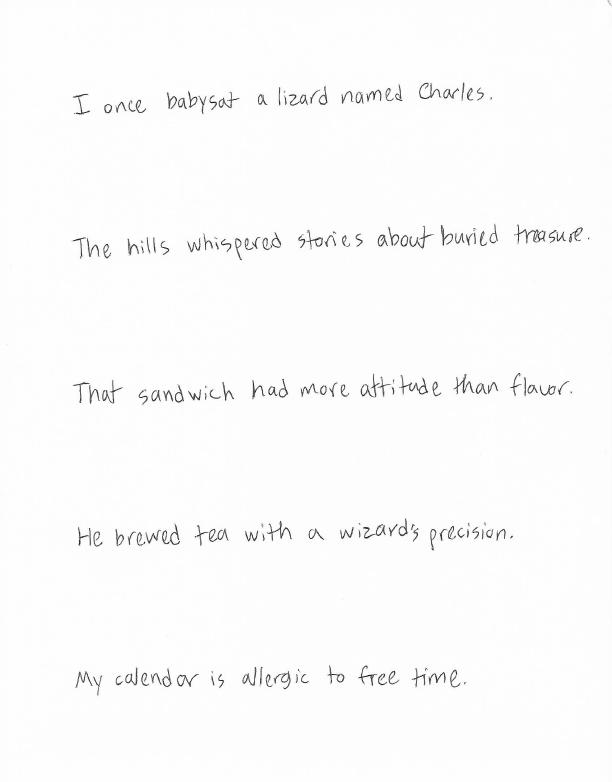 I once babysat a lizard named Charles.
The hills whispered stories about buried treasure.
That sandwich had more attitude than flavor.
He brewed tea with a wizard's precision.
My calendar is allergic to free time.